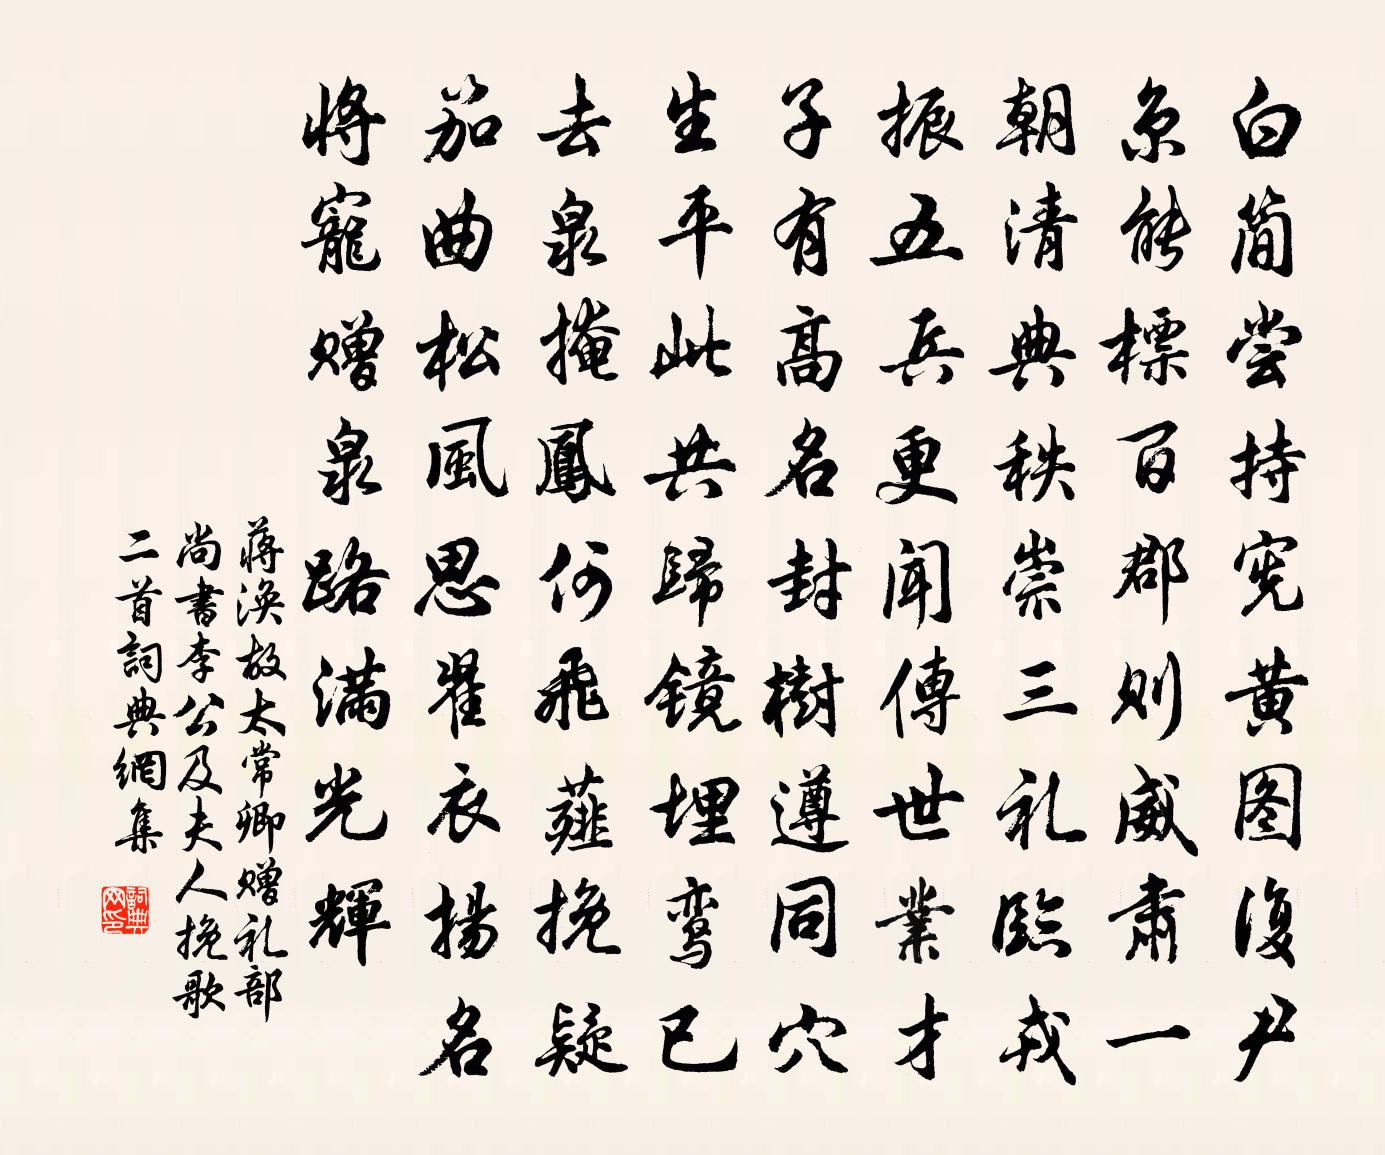 白简尝持宪黄图復尹
京能標百郡则威肅一
朝清典秩崇三礼臨戎
振五兵更闻傳世業才
子有高名封樹遵同穴
生平此共歸镜埋鸾已
去泉掩鳳何飛薤挽疑
笳曲松風思翟衣揚名
將寵赠泉路满光輝
蒋涣故太常卿赠礼部
尚書李公及夫人挽歌
二首詞典網集
詞典
网印